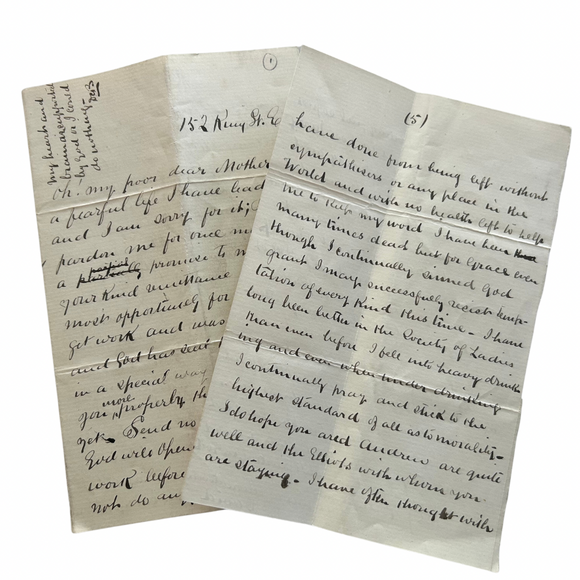 my hearth and
brain are supported
by God or I could
do nothing -
①
152 King St. E
Oh! my poor dear Mother
a fearful life I have lead
and I am sorry for it;
pardon me for once m
a promise to m
your kind remittance
most opportunely for
get work and was
and God has sent
in a special way
you more properly th
yet. Send no
God will open
work before
not do an
(5)
have done from being left without
sympathisers or any place in the
World and with no health left to help
me to keep my word I have been
many times dead but for Grace even
though I continually sinned God
grant I may successfully resist temp-
tation of every kind this time - I have
long been better in the Society of Ladies
than men before I fell into heavy drink
ing and even when under drinking
I continually pray and stick to the
highest standard of all as to morality -
I do hope you and Andrew are quite
well and the Elliots with whom you
are staying - I have often thought with